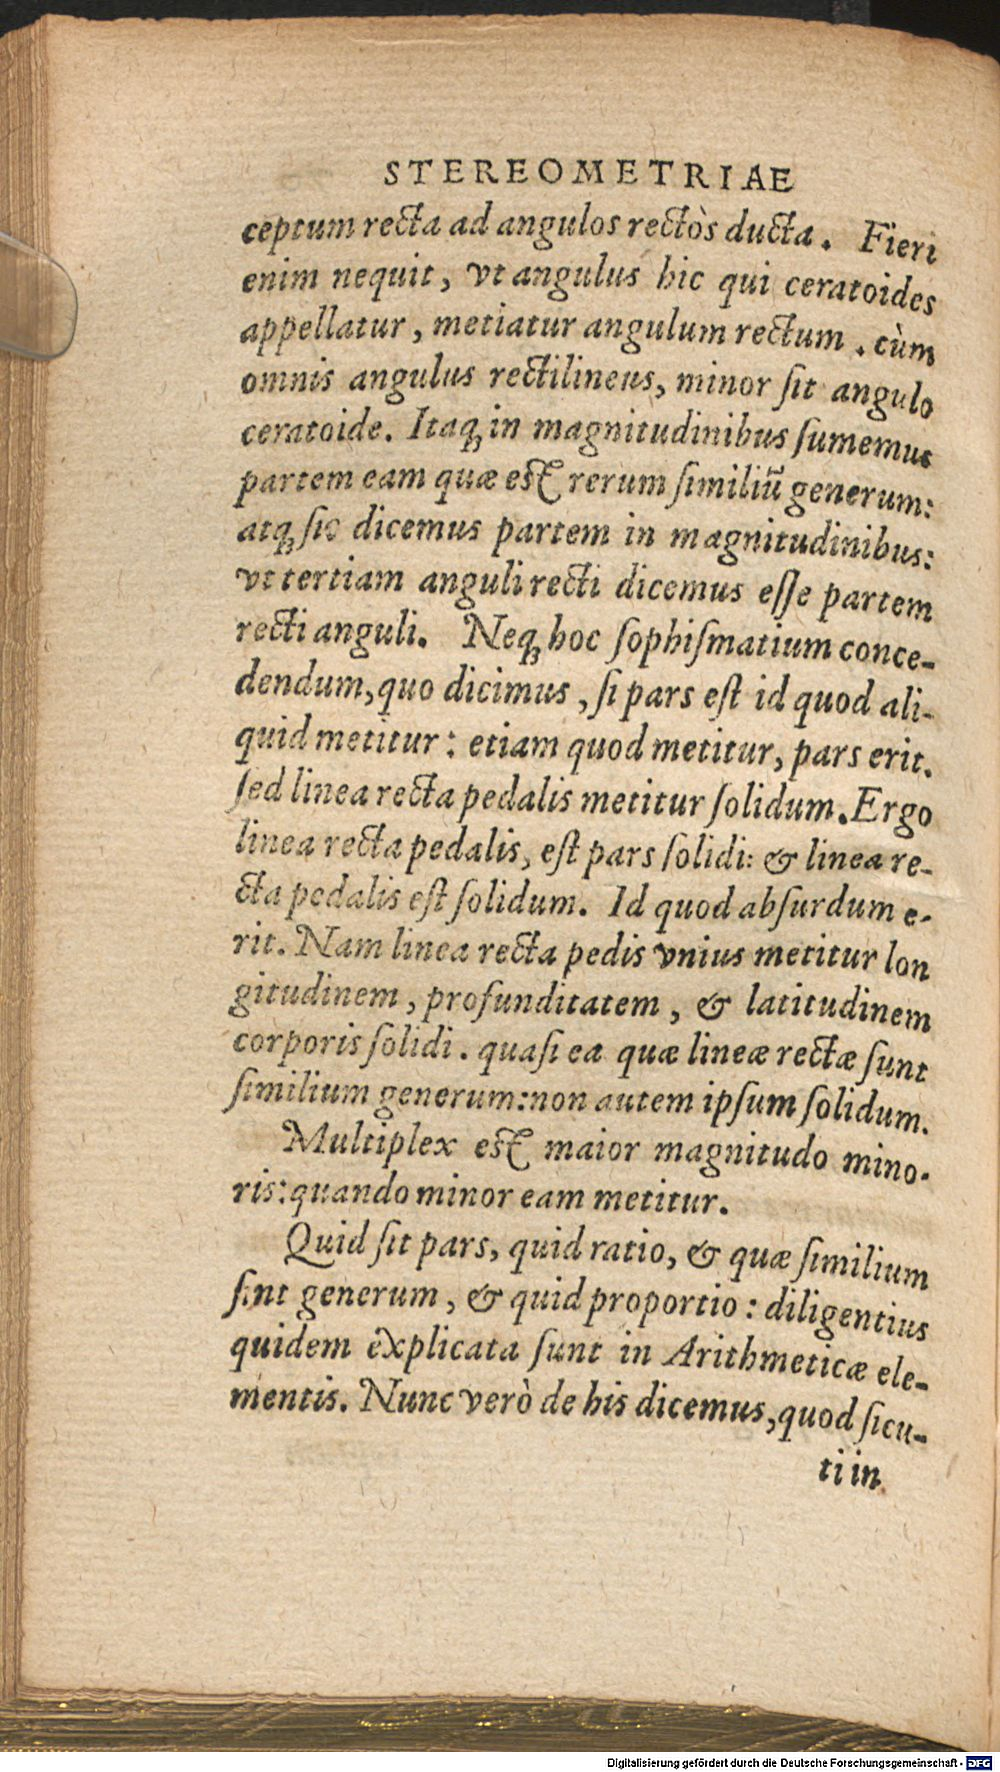 STEREOMETRIAE
ceptum recta ad angulos rectòs ducta. Fieri
enim nequit, vt angulus hic qui ceratoides
appellatur, metiatur angulum rectum. cùm
omnis angulus rectilineus, minor sit angulo
ceratoide. Itaqꝫ in magnitudinibus sumemus
partem eam quæ est rerum similiū generum:
atqꝫ sic dicemus partem in magnitudinibus:
vt tertiam anguli recti dicemus esse partem
recti anguli. Neqꝫ hoc sophismatium conce-
dendum, quo dicimus, si pars est id quod ali-
quid metitur: etiam quod metitur, pars erit.
sed linea recta pedalis metitur solidum. Ergo
linea recta pedalis, est pars solidi: & linea re-
cta pedalis est solidum. Id quod absurdum e-
rit. Nam linea recta pedis vnius metitur lon
gitudinem, profunditatem, & latitudinem
corporis solidi. quasi ea quæ lineæ rectæ sunt
similium generum: non autem ipsum solidum.
Multiplex est maior magnitudo mino-
ris: quando minor eam metitur.
Quid sit pars, quid ratio, & quæ similium
sint generum, & quid proportio: diligentius
quidem explicata sunt in Arithmeticæ ele-
mentis. Nunc verò de his dicemus, quod sicu-
ti in
Digitalisierung gefördert durch die Deutsche Forschungsgemeinschaft - DFG